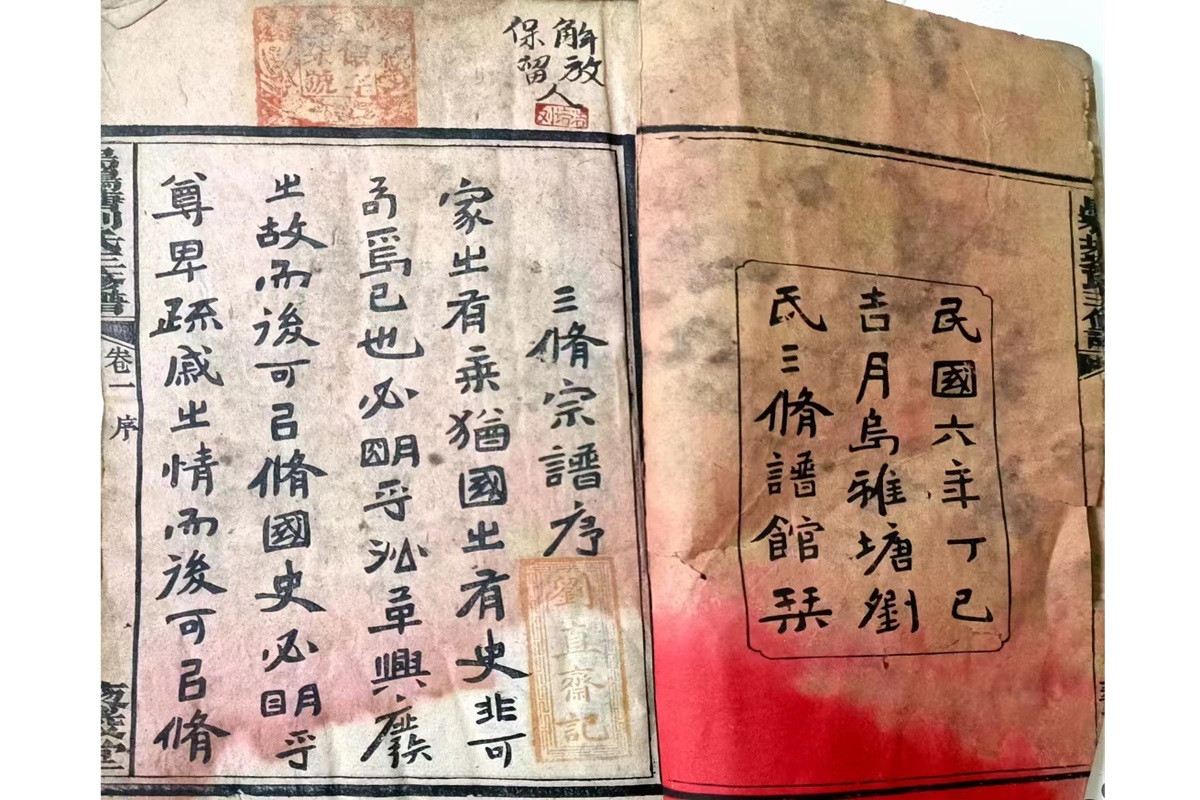 民國六年丁巳
吉月烏雅塘劉
氏三脩譜館栞
解放人
保留
三脩宗譜序
劉直齋記
家㞢有乘猶國㞢有史非可
苟焉已也必朙乎沿革興廢
㞢故而後可㠯脩國史必明乎
尊卑疏戚㞢情而後可㠯脩
卷一 序